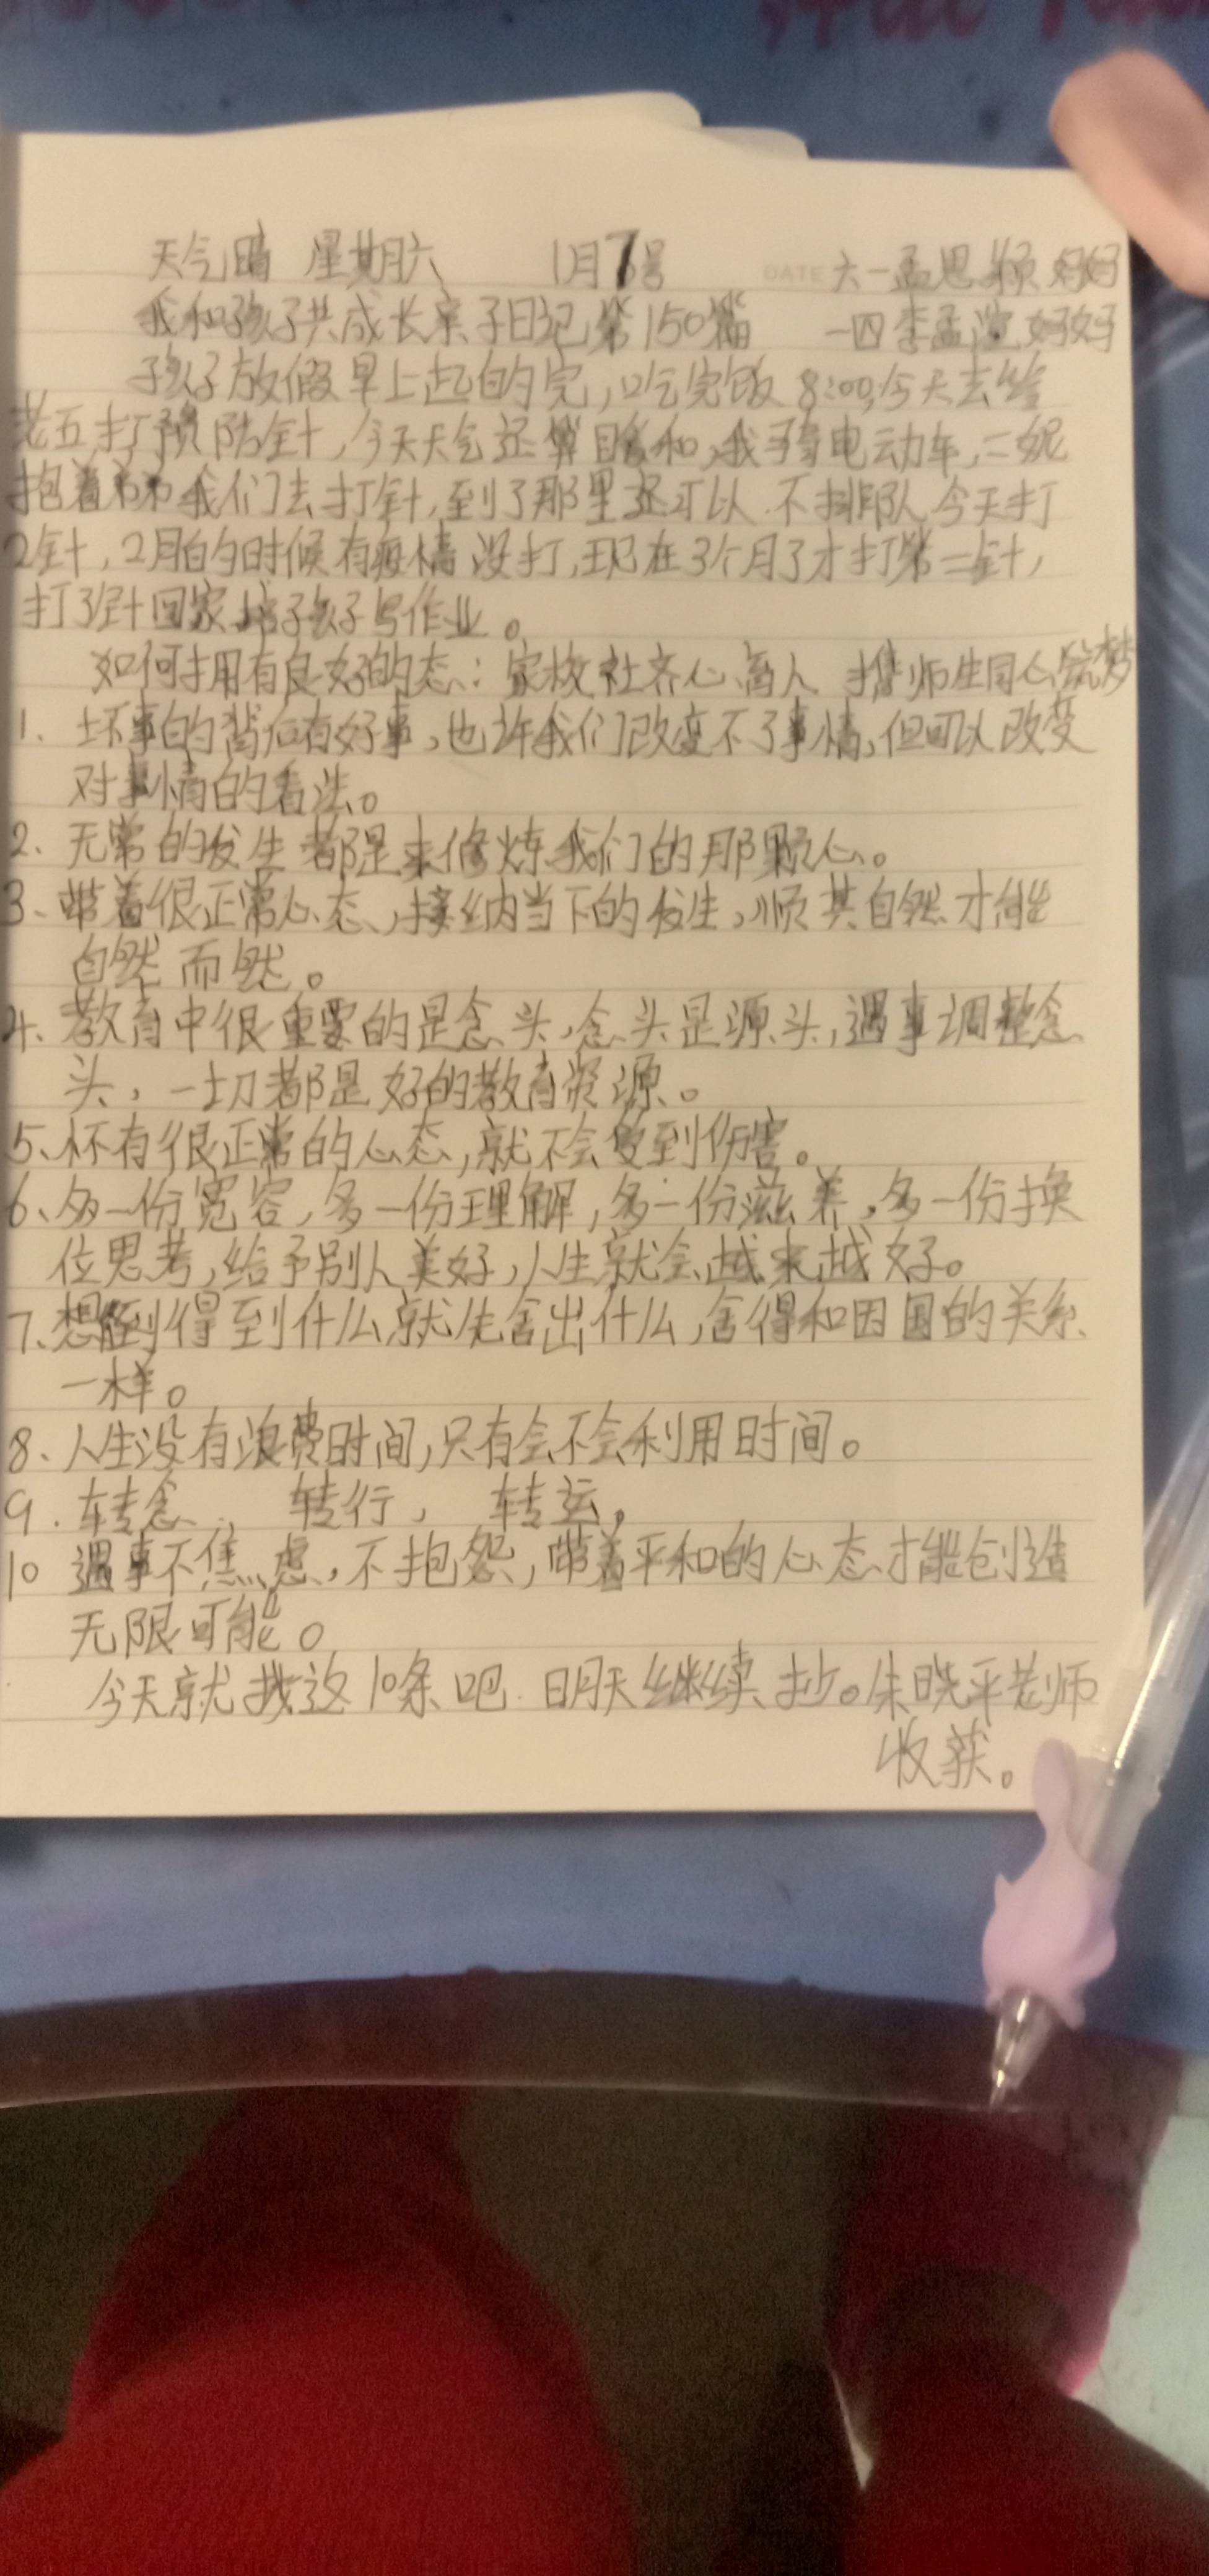 天气晴 星期六 1月7号 DATE 六一孟思颖妈妈
我和孩子共成长亲子日记第150篇 一四李孟 妈妈
孩子放假早上起的完,吃完饭8:00,今天去给
老五打预防针,今天天气还算暖和,我骑电动车,二妮
抱着弟弟我们去打针,到了那里还可以.不排队,今天打
2针,2月的时候有疫情没打,现在3个月了才打第二针,
打了针回家 孩子写作业。
如何拥有良好的态:家校社齐心 人 携师生同心 梦
1、坏事的背后有好事,也许我们改变不了事情,但可以改变
对事情的看法。
2、无常的发生都是来修炼我们的那颗心。
3、带着很正常心态,接纳当下的发生,顺其自然才能
自然而然。
4、教育中很重要的是念头,念头是源头,遇事调整念
头,一切都是好的教育资源。
5、怀有很正常的心态,就不会受到伤害。
6、多一份宽容,多一份理解,多一份滋养,多一份换
位思考,给予别人美好,人生就会越来越好。
7、想 得到什么就先舍出什么,舍得和因国的关系
一样。
8、人生没有浪费时间,只有会不会利用时间。
9.转念, 转行, 转运,
10 遇事不焦虑,不抱怨,带着平和的心态才能创造
无限可能。
今天就找这10条吧.明天继续抄。朱晓平老师
收获。